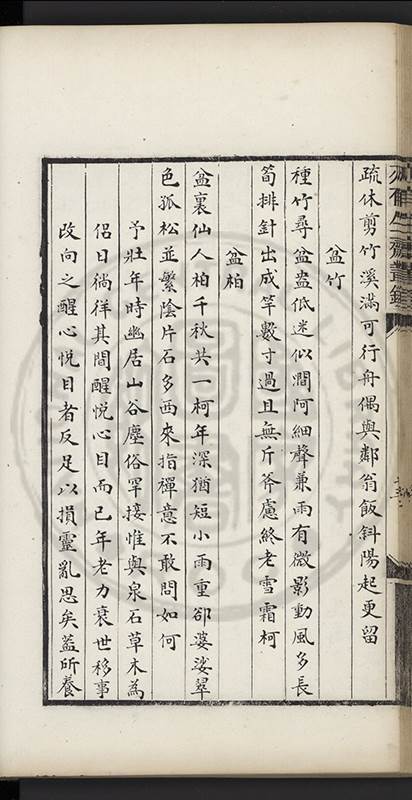 疏休剪竹溪滿可行舟偶與鄰翁飯斜陽起更留
盆竹
種竹尋盆盎低迷似澗阿細聲兼雨有微影動風多長
筍排針出成竿數寸過且無斤斧慮終老雪霜柯
盆柏
盆裏仙人柏千秋共一柯年深猶短小雨重郤婆娑翠
色孤松並繁陰片石多西來指禪意不敢問如何
予壯年時幽居山谷塵俗罕接惟與泉石草木為
侶日徜徉其間醒悅心目而已年老力衰世移事
改向之醒心悅目者反足以損靈亂思矣蓋所養